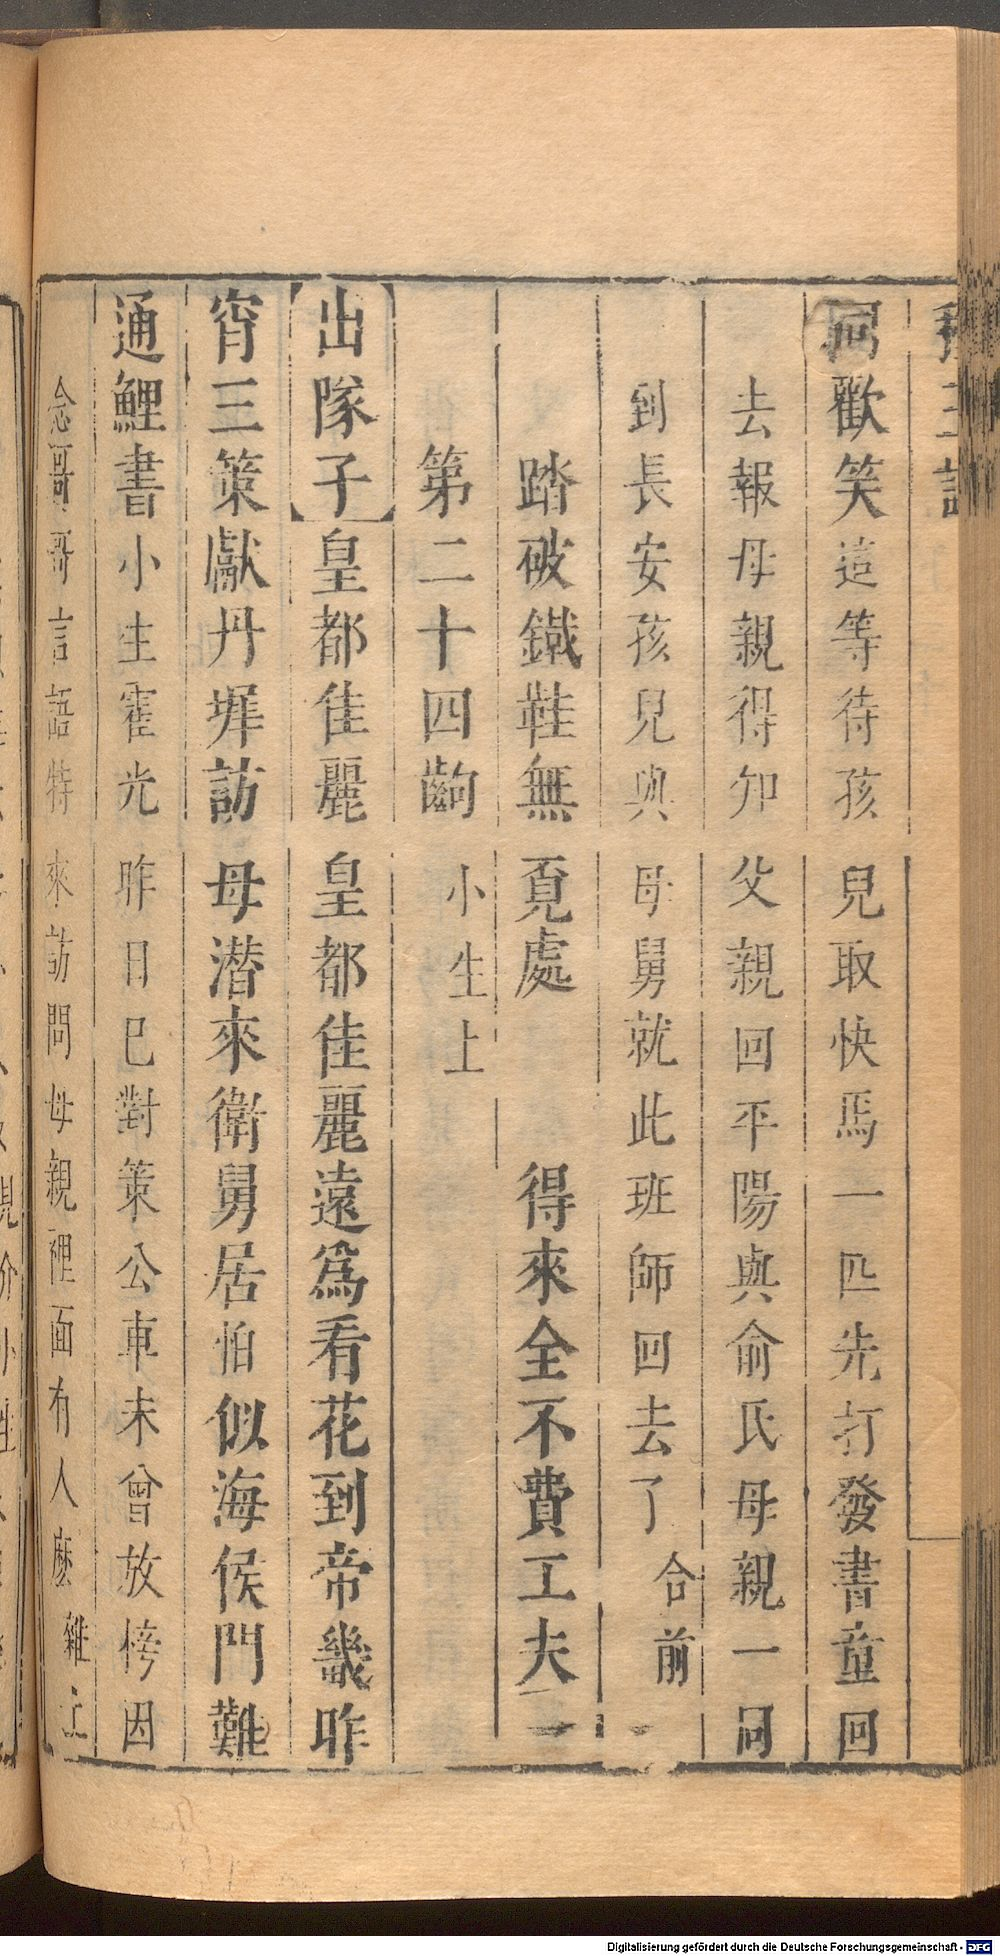 同歡笑這等待孩兒取快馬一匹先打發書童回
去報母親得知父親回平陽與俞氏母親一同
到長安孩兒與母舅就此班師回去了合前
踏破鐵鞋無覓處　得來全不費工夫
第二十四齣　小生上
【出隊子】皇都佳麗皇都佳麗遠為看花到帝畿昨
宵三策獻丹墀訪母潛來衛舅居怕似海侯門難
通鯉書小生霍光昨日已對策公車未曾放榜因
念哥哥言語特來訪問母親裡面有人麼雜上
Digitalisierung gefördert durch die Deutsche Forschungsgemeinschaft - DFG